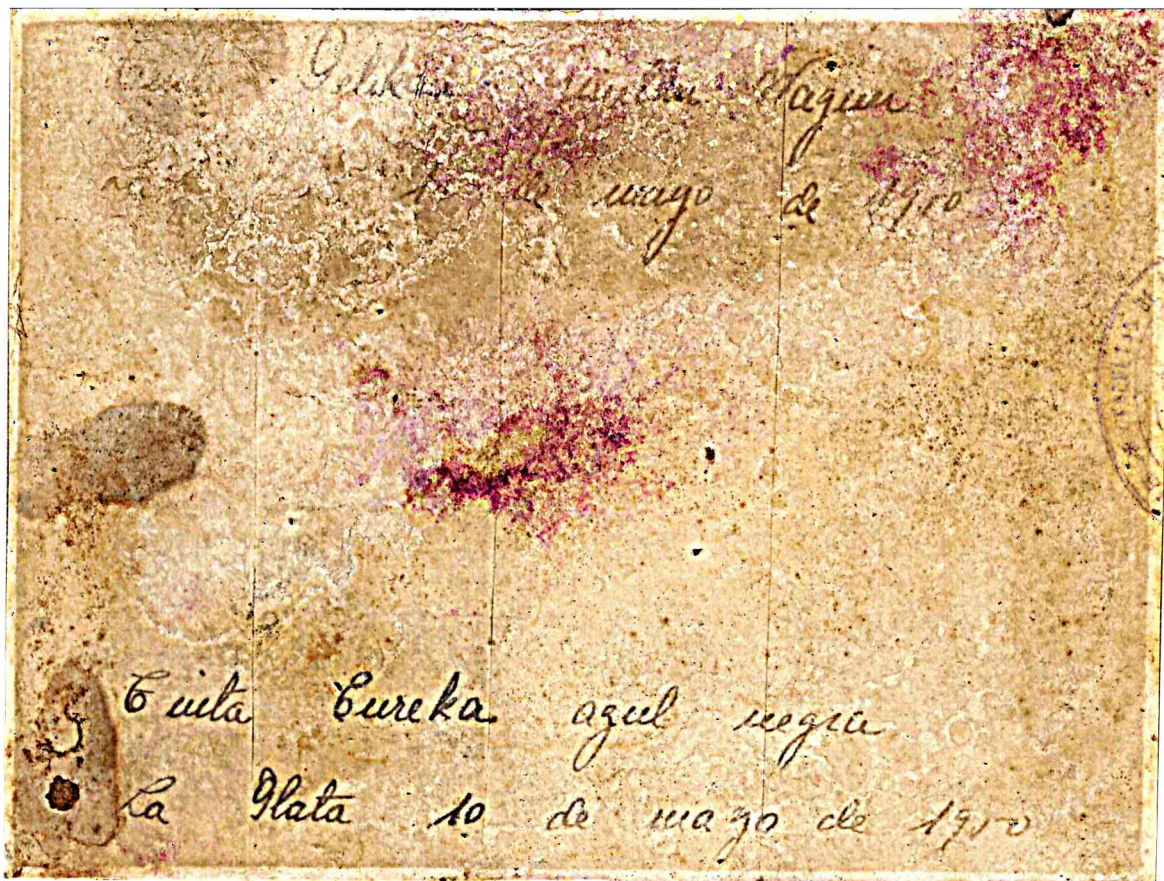 Tinta Pelikan Wagner
de mayo de 1950
Tinta Eureka azul negra
La Plata 10 de mayo de 1950